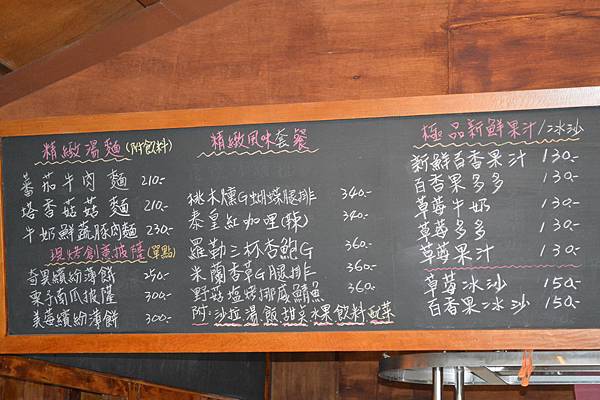 精緻湯麵(附飲料)
蕃茄牛肉麵 210.-
塔香菇菇麵 210.-
牛奶鮮蔬豚肉麵 230.-
現烤創意披薩(單點)
奇異繽紛薄餅 250.-
栗子南瓜披薩 300.-
美莓繽紛薄餅 300.-
精緻風味套餐
桃木燻G蝴蝶腿排 340.-
泰皇紅咖哩(辣) 340.-
羅勒三杯杏鮑G 360.-
米蘭香草G腿排 360.-
野菇塩烤挪威鯖魚 360.-
附:沙拉湯飯甜菜水果飲料蔬菜
極品新鮮果汁/冰沙
新鮮百香果汁 130.-
百香果多多 130.-
草莓牛奶 130.-
草莓多多 130.-
草莓果汁 130.-
草莓冰沙 150.-
百香果冰沙 150.-